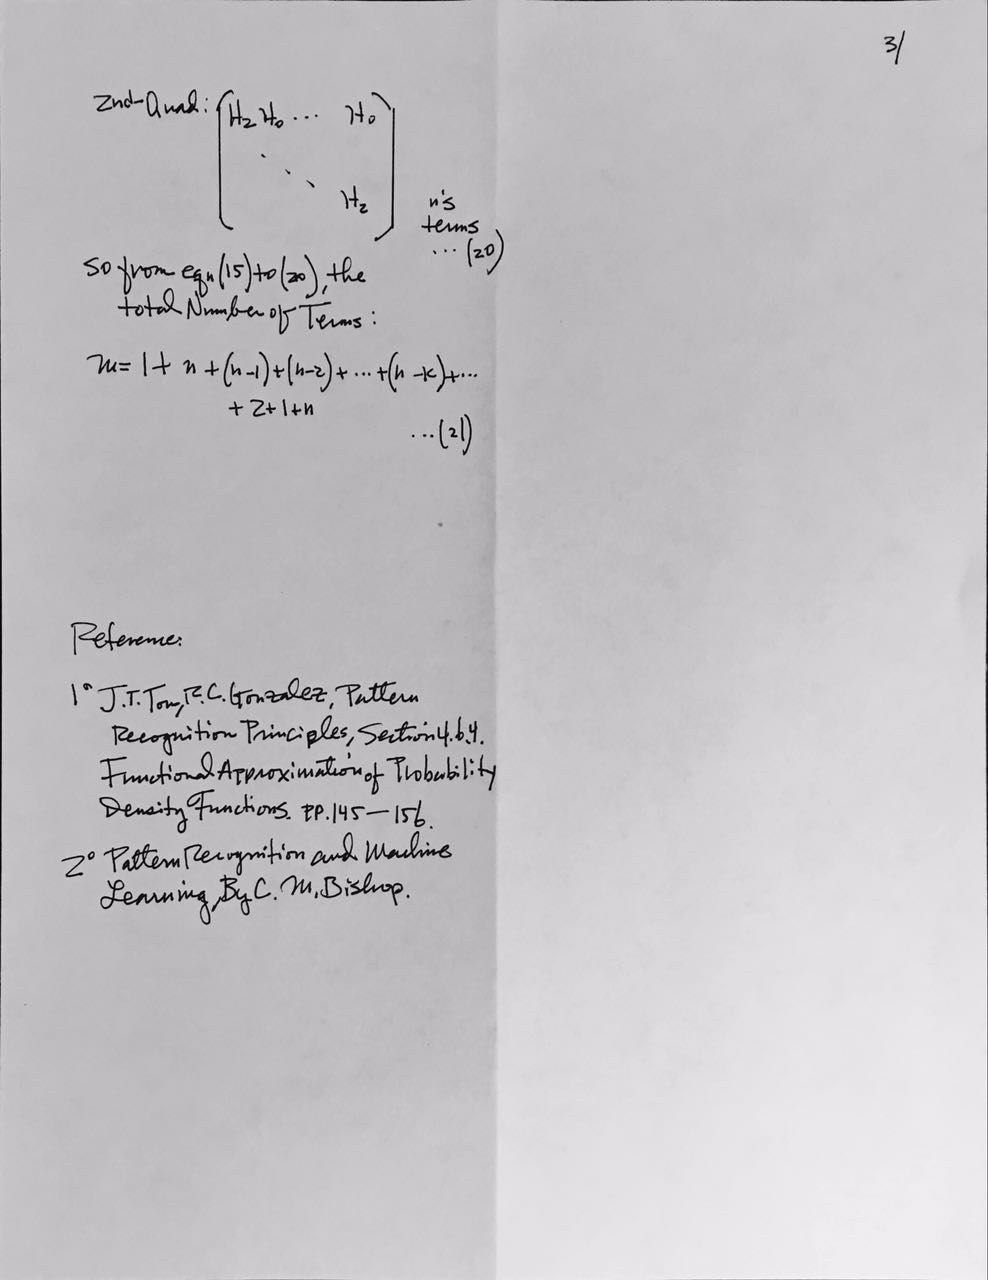 3/
2nd-Quad: ( H₂ H₀ ... H₀
⋱
H₂ ) n's
terms
... (20)
so from eqn (15) to (20), the
total Number of Terms:
m = 1 + n + (n-1) + (n-2) + ... + (n-k) + ...
+ 2 + 1 + n
... (21)
Reference:
1° J.T. Tou, R.C. Gonzalez, Pattern
Recognition Principles, Section 4.6.4.
Functional Approximation of Probability
Density Functions. PP. 145—156.
2° Pattern Recognition and Machine
Learning, By C. M. Bishop.